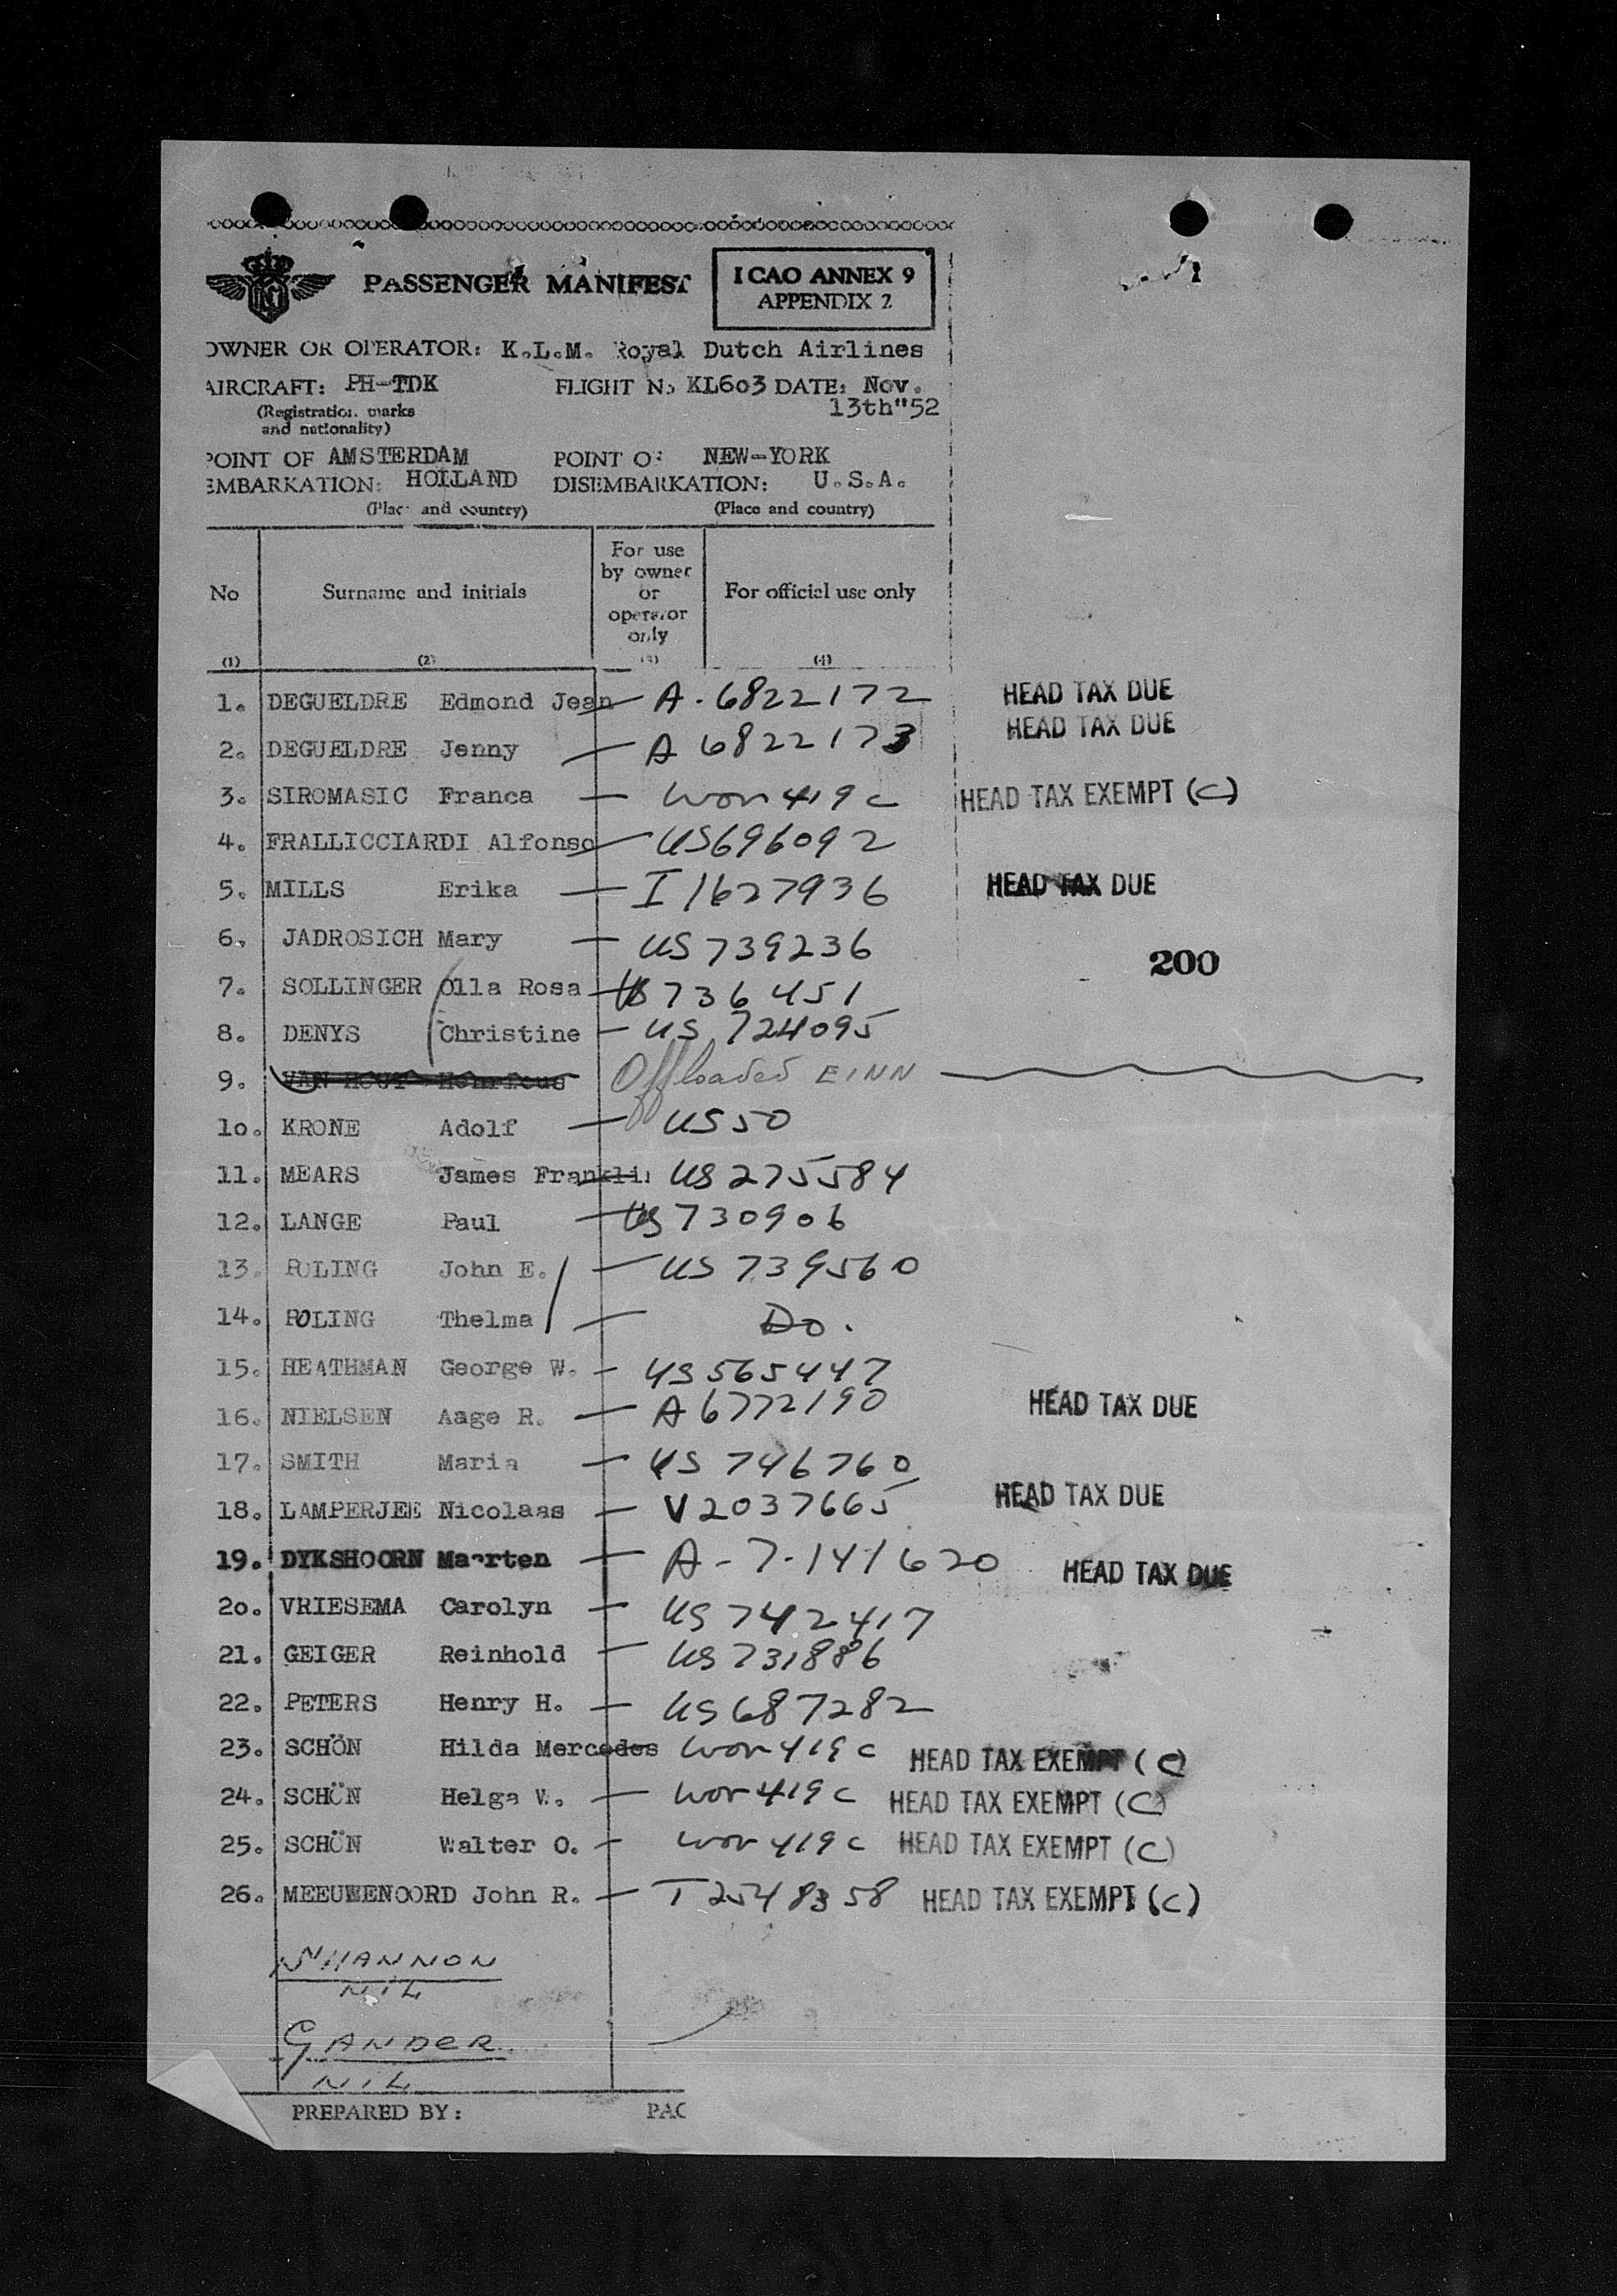 PASSENGER MANIFEST
I CAO ANNEX 9
APPENDIX 2
OWNER OR OPERATOR: K.L.M. Royal Dutch Airlines
AIRCRAFT: PH-TDK FLIGHT No KL6o3 DATE: Nov.
13th"52
(Registration marks
and nationality)
POINT OF AMSTERDAM POINT OF NEW-YORK
EMBARKATION: HOLLAND DISEMBARKATION: U.S.A.
(Place and country) (Place and country)
No Surname and initials For use by owner or operator only For official use only
(1) (2) (3) (4)
1. DEGUELDRE Edmond Jean — A-6822172 HEAD TAX DUE
2. DEGUELDRE Jenny — A 6822173 HEAD TAX DUE
3. SIROMASIC Franca — Won 419 c HEAD TAX EXEMPT (C)
4. FRALLICCIARDI Alfonso — US696092
5. MILLS Erika — I 1627936 HEAD TAX DUE
6. JADROSICH Mary — US 739236
200
7. SOLLINGER Olla Rosa — US 736451
8. DENYS Christine — US 724095
9. VAN HOUT Offloaded EINN
1o. KRONE Adolf — US50
11. MEARS James Franklin US 275584
12. LANGE Paul — US 730906
13. POLING John E. — US 739560
14. POLING Thelma — Do.
15. HEATHMAN George W. — US 565447
16. NIELSEN Aage R. — A 6772190 HEAD TAX DUE
17. SMITH Maria — US 746760
18. LAMPERJEE Nicolaas — V 2037665 HEAD TAX DUE
19. DYKSHOORN Maarten — A-7-141620 HEAD TAX DUE
2o. VRIESEMA Carolyn — US 742417
21. GEIGER Reinhold — US 731886
22. PETERS Henry H. — US 687282
23. SCHÖN Hilda Mercedes Won 419 c HEAD TAX EXEMPT (C)
24. SCHÖN Helga W. — Won 419 c HEAD TAX EXEMPT (C)
25. SCHÖN Walter O. — Won 419 c HEAD TAX EXEMPT (C)
26. MEEUWENOORD John R. — T 2548358 HEAD TAX EXEMPT (C)
SHANNON
NIL
GANDER
NIL
PREPARED BY: PAG